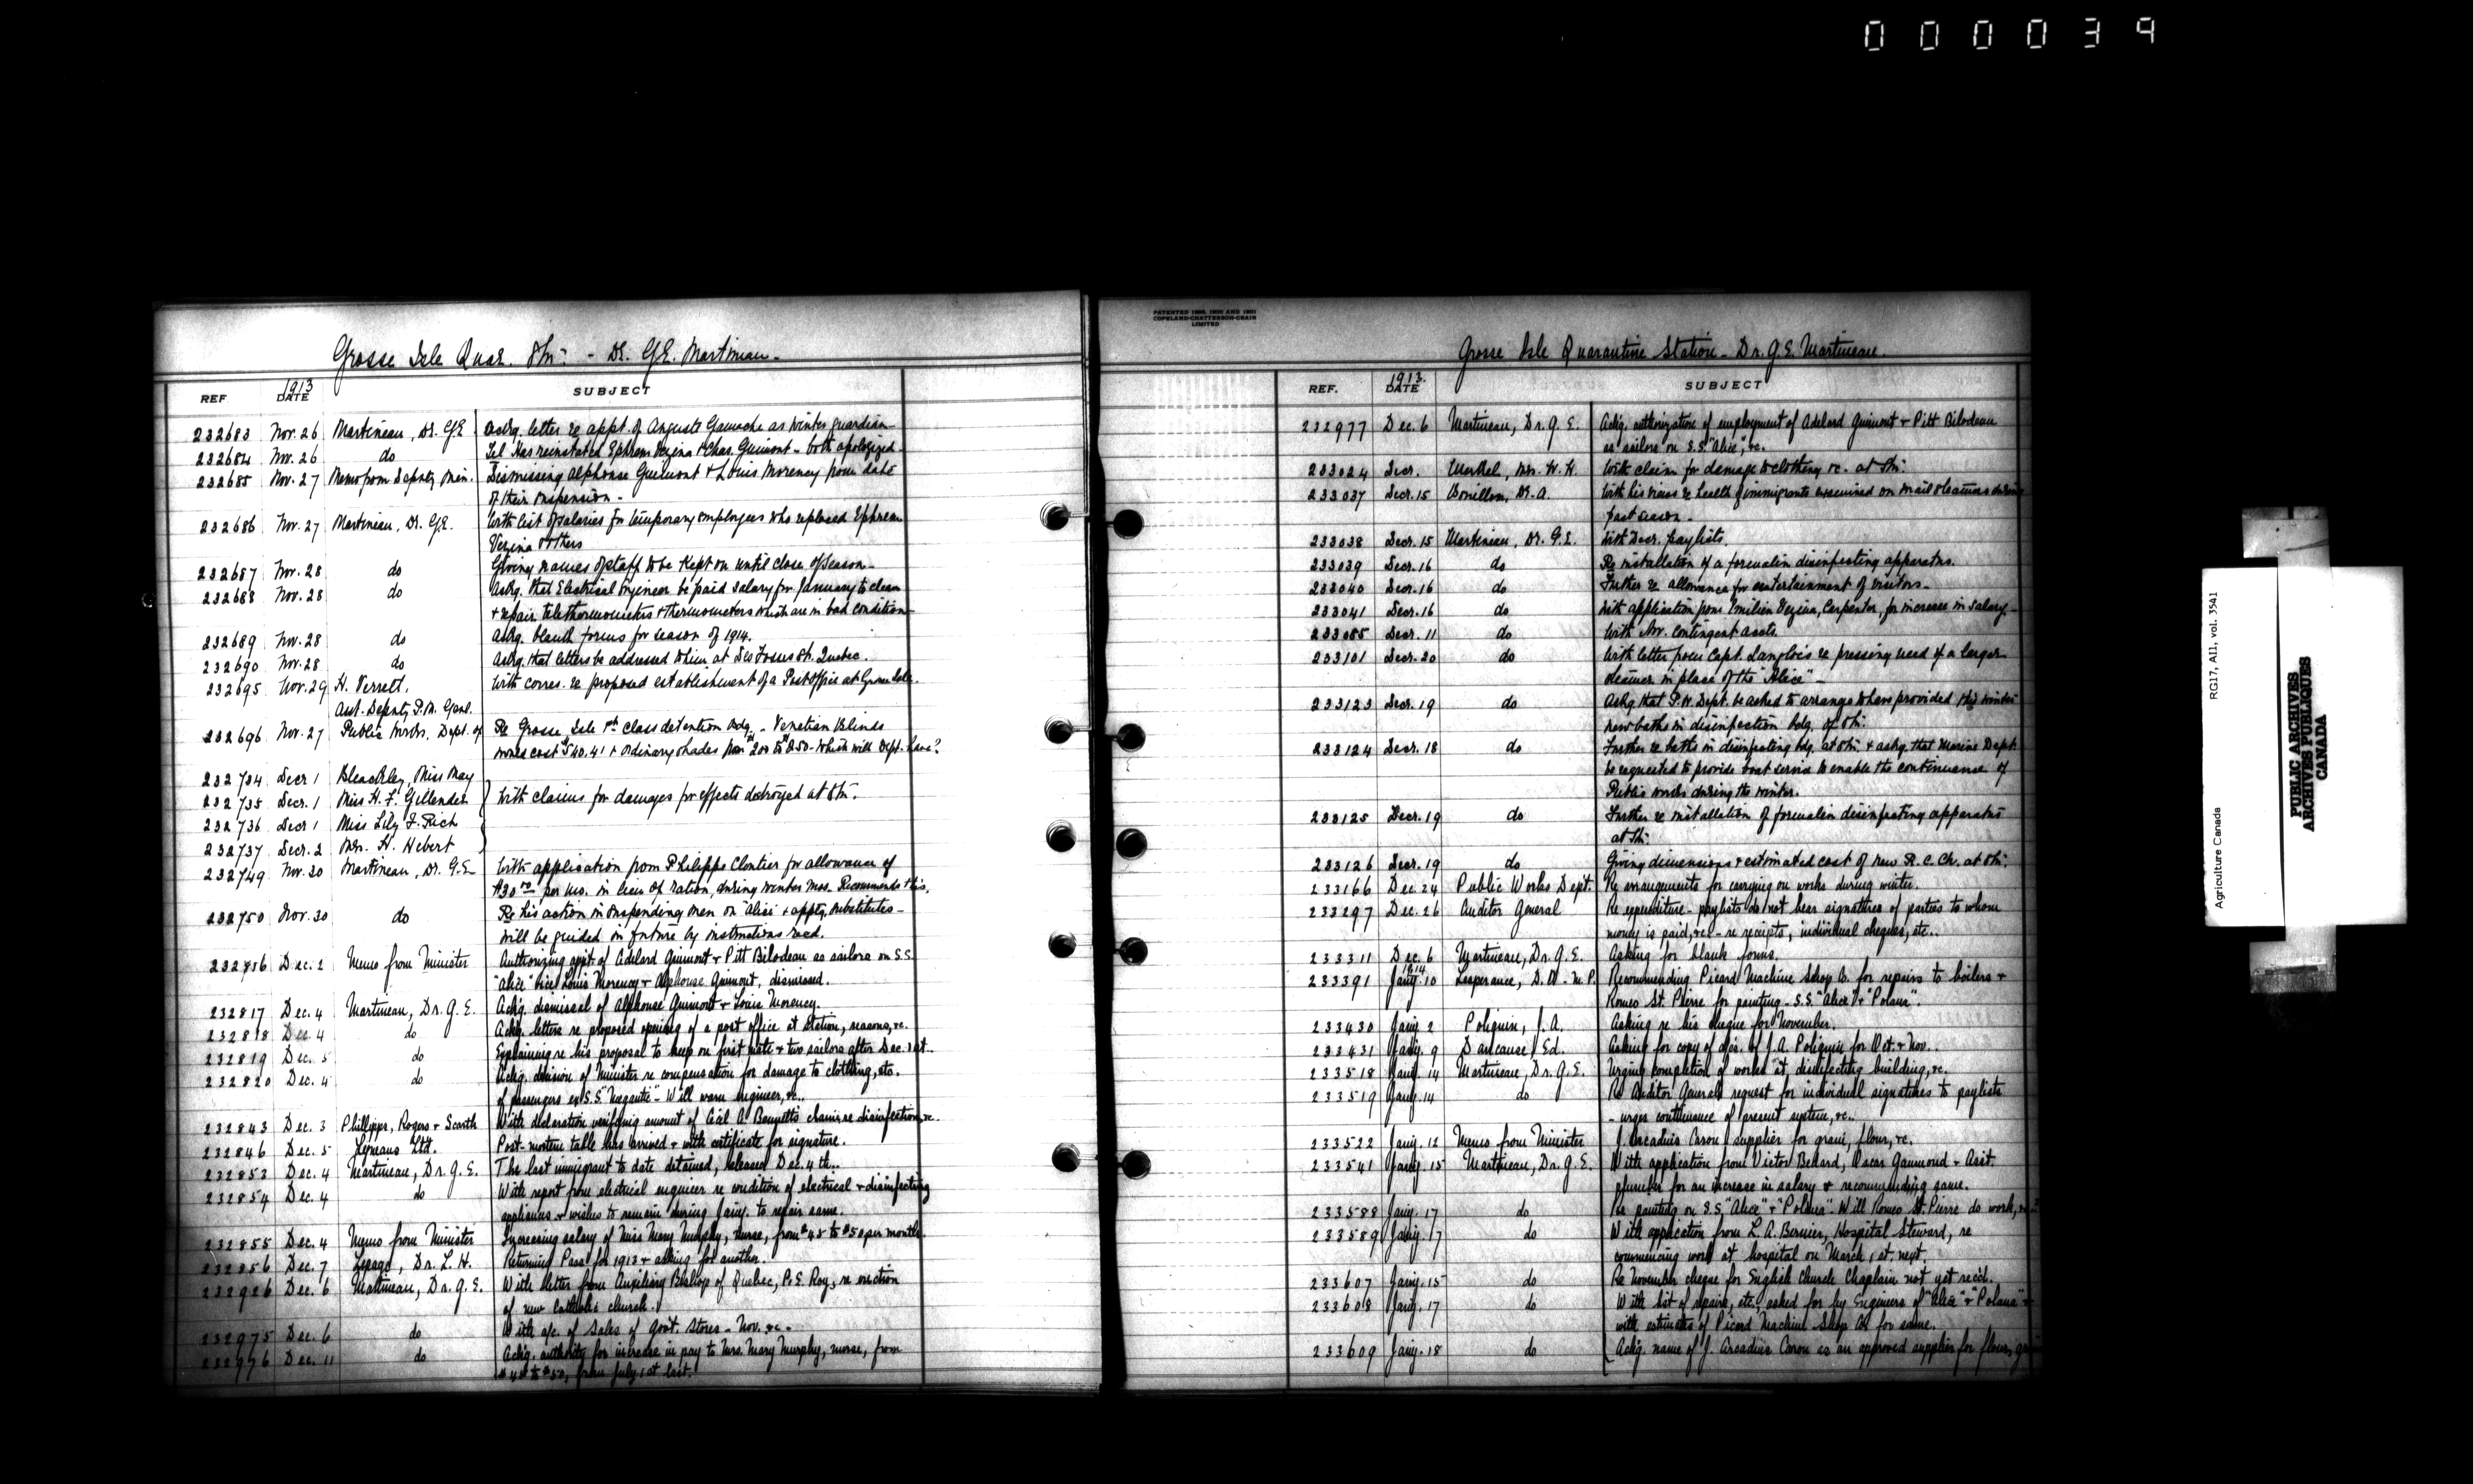 000039
Grosse Isle Quar. Stn: - Dr. G.E. Martineau.
REF 1913 DATE SUBJECT
232683 Nov. 26 Martineau, Dr. G.E. Ackg. letter re appt. of Auguste Gamache as winter guardian
232684 Nov. 26 do Tel Has reinstated Ephrem Vezina & Chas. Guimont - both apologized -
232685 Nov. 27 Memo from Deputy Min. Dismissing Alphonse Guimont & Louis Morency from date
of their suspension -
232686 Nov. 27 Martineau, Dr. G.E. With list of salaries for temporary employees who replaced Ephrem
Vezina & others
232687 Nov. 28 do Giving names of staff to be kept on until close of season -
232688 Nov. 28 do Askg. that Electrical Engineer be paid salary for January to clean
& repair telethermometers & thermometers which are in bad condition
232689 Nov. 28 do Askg. blank forms for season of 1914.
232690 Nov. 28 do Askg. that letters be addressed to him at Des Fosses St. Quebec.
232695 Nov. 29 H. Verrett, With corres. re proposed establishment of a Post Office at Grosse Isle.
Asst. Deputy P.M. Genl.
232696 Nov. 27 Public Works, Dept. of Re Grosse Isle 1st class detention bdg. - Venetian Blinds
would cost $540.41 & ordinary shades from $200 to $250 - which will Dept. have?
232734 Decr 1 Bleachley, Miss May
232735 Decr. 1 Miss H. F. Gellender With claims for damages for effects destroyed at Stn.
232736 Decr 1 Miss Lily F. Rich
232737 Decr. 2 Mrs. H. Hebert
232749 Nov. 30 Martineau, Dr. G.E. With application from Philippe Cloutier for allowance of
$30.00 per mo. in lieu of ration, during winter mos. Recommends this.
232750 Nov. 30 do Re his action in suspending men on "Alice" & apptg. substitutes -
will be guided in future by instructions recd.
232816 Dec. 2 Memo from Minister Authorizing appt. of Adelard Guimont & Pitt Bilodeau as sailors on S.S.
"Alice" vice Louis Morency & Alphonse Guimont, dismissed.
232817 Dec. 4 Martineau, Dr. G.E. Ackg. dismissal of Alphonse Guimont & Louis Morency.
232818 Dec. 4 do Ackg. letters re proposed opening of a post office at station, reasons, &c.
232819 Dec. 5 do Explaining re his proposal to keep on first mate & two sailors after Dec. 1st..
232820 Dec. 4 do Ackg. decision of Minister re compensation for damage to clothing, etc.
of passengers ex S.S. "Megantic" - Will warn engineer, &c..
232843 Dec. 3 Phillipps, Rogers & Scarth With declaration verifying amount of Cecil A. Bennetts claim re disinfection, &c.
232846 Dec. 5 Lymans Ltd. Post-mortem table has arrived & with certificate for signature.
232853 Dec. 4 Martineau, Dr. G.E. The last immigrant to date detained, released Dec. 4th..
232854 Dec. 4 do With report from electrical engineer re condition of electrical & disinfecting
appliances & wishes to remain during Jany. to repair same.
232855 Dec. 4 Memo from Minister Increasing salary of Miss Mary Murphy, nurse, from $45 to $50 per month.
232856 Dec. 7 Lepage, Dr. L. H. Returning Pass for 1913 & asking for another.
232926 Dec. 6 Martineau, Dr. G.E. With letter from Auxiliary Bishop of Quebec, P. E. Roy, re erection
of new Catholic church.
232975 Dec. 6 do With a/c. of sales of Govt. Stores - Nov. &c. -
232976 Dec. 11 do Ackg. authority for increase in pay to Mrs. Mary Murphy, nurse, from
$45 to $50, from July 1st last.
PATENTED 1896, 1900 AND 1901
COPELAND-CHATTERSON-CRAIN
LIMITED
Grosse Isle Quarantine Station - Dr. G.E. Martineau.
REF. 1913. DATE SUBJECT
232977 Dec. 6 Martineau, Dr. G.E. Ackg. authorization of employment of Adelard Guimont & Pitt Bilodeau
as sailors on S.S. "Alice", &c.
233024 Decr. Merkel, Mrs. W. H. With claim for damage to clothing &c. at Stn:
233037 Decr. 15 Bouillon, Dr. A. With his views re health of immigrants examined on mail steamers during
past season -
233038 Decr. 15 Martineau, Dr. G.E. With Decr. paylists.
233039 Decr. 16 do Re installation of a formalin disinfecting apparatus.
233040 Decr. 16 do Further re allowance for entertainment of visitors -
233041 Decr. 16 do With application from Emilien Vezina, Carpenter, for increase in salary -
233085 Decr. 11 do With Nov. contingent accts.
233101 Decr. 20 do With letter from Capt. Langlois re pressing need of a larger
steamer in place of the "Alice" -
233123 Decr. 19 do Askg. that P.W. Dept. be asked to arrange to have provided this winter
new baths in disinfection bdg. of Stn:
233124 Decr. 18 do Further re baths in disinfecting bdg. at Stn. & askg. that Marine Dept.
be requested to provide boat service to enable the continuance of
Public works during the winter.
233125 Decr. 19 do Further re installation of formalin disinfecting apparatus
at Stn:
233126 Decr. 19 do Giving dimensions & estimated cost of new R. C. Ch. at Stn:
233166 Dec. 24 Public Works Dept. Re arrangements for carrying on works during winter.
233297 Dec. 26 Auditor General Re expenditure - paylists do not bear signatures of parties to whom
money is paid, &c. - re receipts, individual cheques, etc..
233311 Dec. 6 Martineau, Dr. G.E. Asking for blank forms.
1914
233391 Jany. 10 Lesperance, D. O. - M.P. Recommending Picard Machine Shop Co. for repairs to boilers &
Romeo St. Pierre for painting - S.S. "Alice" & "Polana".
233430 Jany. 2 Poliquin, J. A. Asking re his cheque for November.
233431 Jany. 9 Dancause, Ed. Asking for copy of a/cs. of J. A. Poliquin for Oct. & Nov..
233518 Jany. 14 Martineau, Dr. G.E. Urging completion of works at disinfecting building, &c.
233519 Jany. 14 do Re Auditor Generals request for individual signatures to paylists
- urges continuance of present system, &c..
233522 Jany. 12 Memo from Minister J. Arcadius Caron supplier for grain, flour, &c.
233541 Jany. 15 Martineau, Dr. G.E. With application from Victor Bedard, Oscar Gaumond & Asst.
plumber for an increase in salary & recommending same.
233588 Jany. 17 do Re painting on S.S. "Alice" & "Polana". Will Romeo St. Pierre do work,
233589 Jany. 17 do With application from L. A. Bernier, Hospital Steward, re
commencing work at hospital on March 1st next.
233607 Jany. 15 do Re November cheque for English Church Chaplain not yet recd.
233608 Jany. 17 do With list of repairs, etc., asked for by Engineers of "Alice" & "Polana" &
with estimates of Picard Machine Shop Co. for same.
233609 Jany. 18 do Ackg. name of J. Arcadius Caron as an approved supplier for flour,
Agriculture Canada RG17, A11, vol. 3541
PUBLIC ARCHIVES
ARCHIVES PUBLIQUES
CANADA